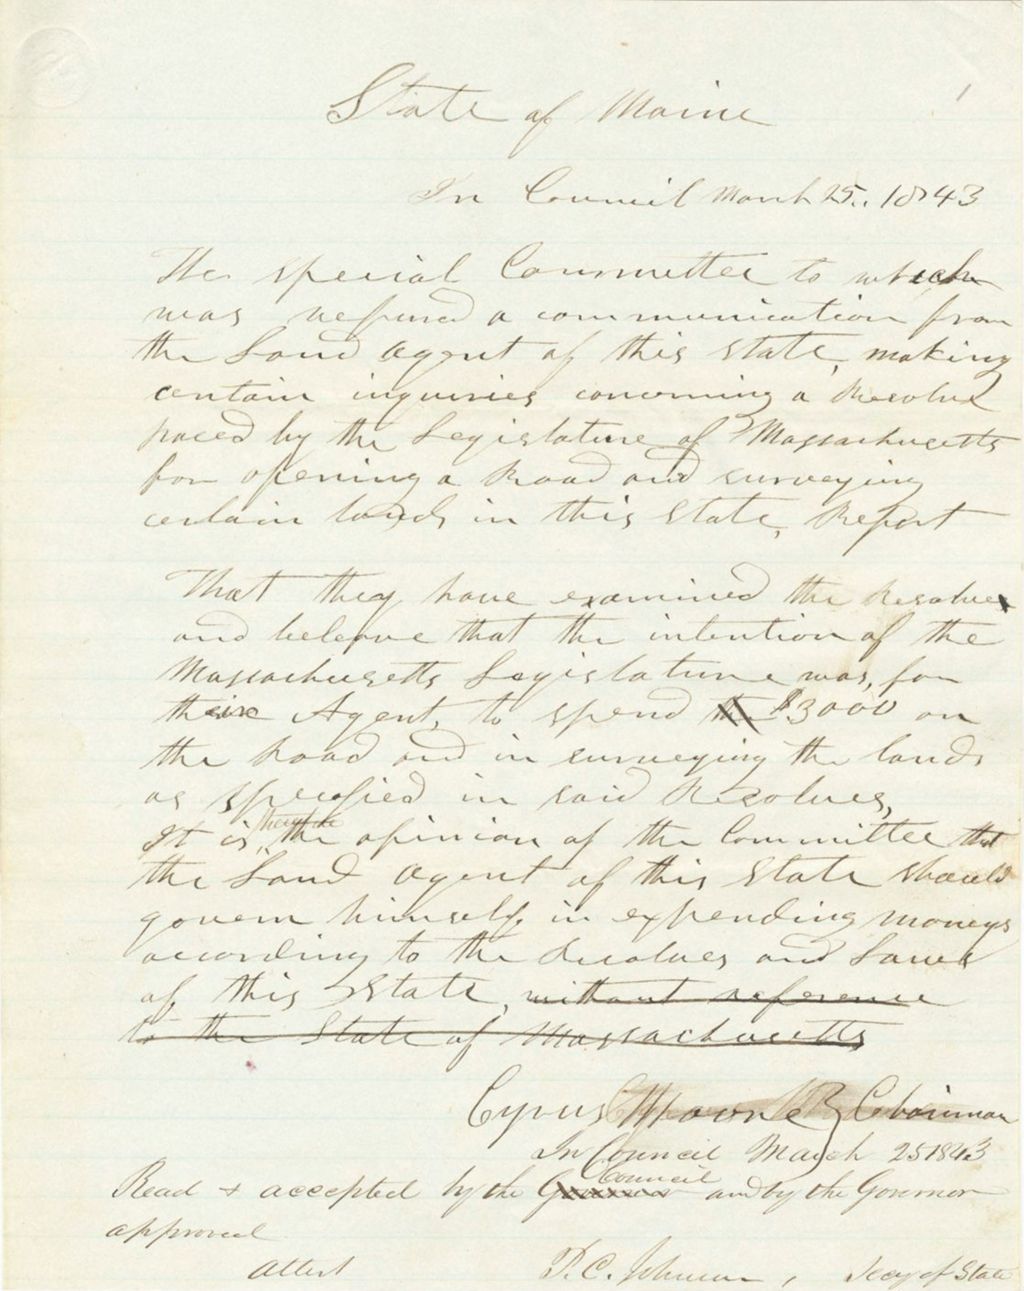 1
State of Maine
In Council March 25, 1843
The special Committee to which
was refered a communication from
the Land Agent of this State, making
certain inquiries concerning a Resolve
paced by the Legislature of Massachusetts
for opening a Road and surveying
certain lands in this State, Report
That they have examined the Resolve
and beleave that the intention of the
Massachusetts Legislature was, for
their Agent, to spend $3000 on
the Road and in surveying the lands
as specified in said Resolves,
It is, therefore the opinion of the Committee that
the Land Agent of this State should
govern himself, in expending moneys
according to the Resolves and Laws
of this State, without reference
to the State of Massachusetts,
Cyrus Chairman
In Council March 25 1843
Read & accepted by the Council and by the Governor
approved
Attest P. C. Johnson, Secy of State